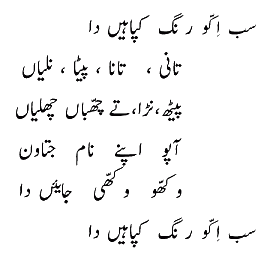 سب اِکّو رنگ کپاہیں دا
تانی ، تانا ، پیٹا ، نلیاں
پیٹھ،نڑا،تے چھّباں چھلیاں
آپو اپنے نام جتاون
وکھّو وکھّی جائیں دا
سب اِکّو رنگ کپاہیں دا